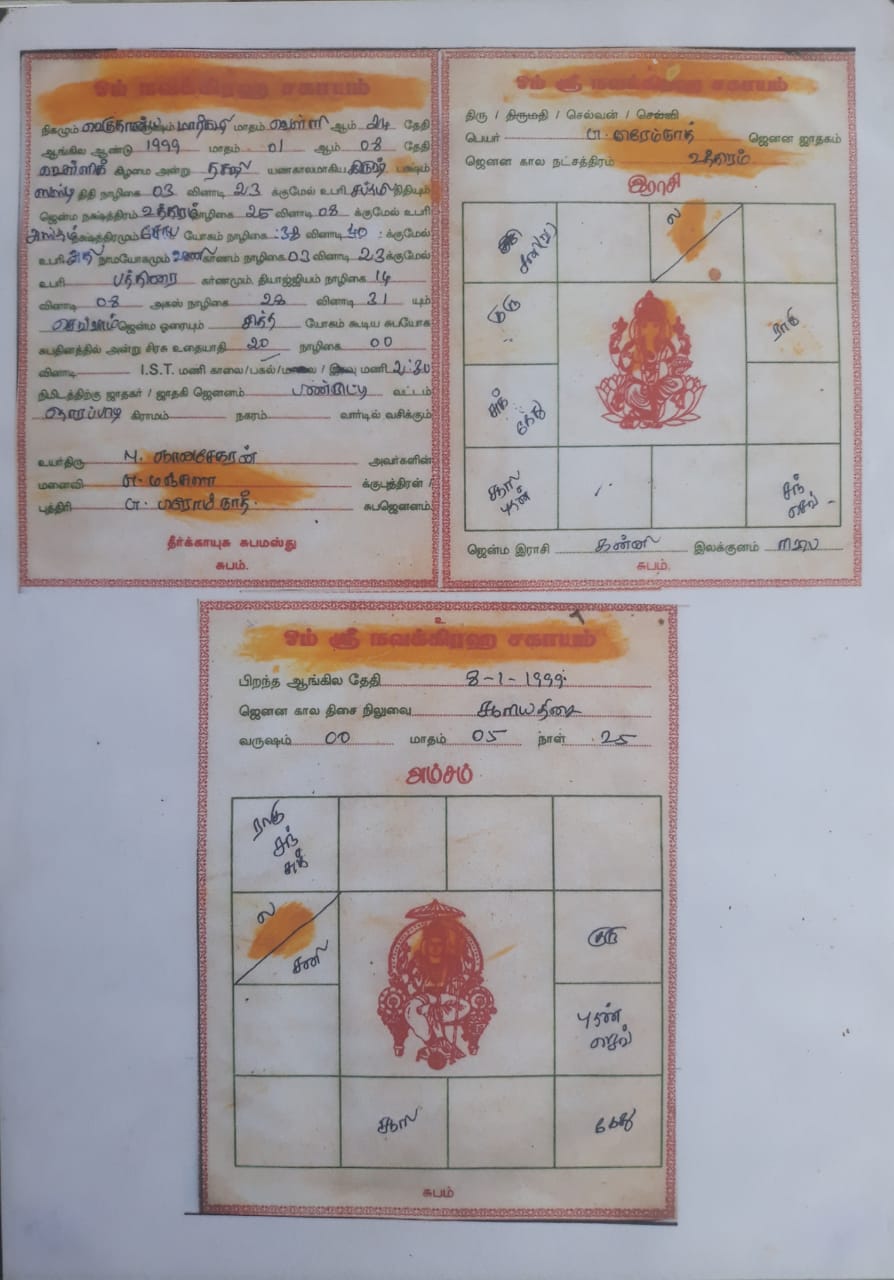 ஓம் நவக்கிரஹ சகாயம்
நிகழும் வெகுதான்ய வருடம் மார்கழி மாதம் வெள்ளி ஆம் 24 தேதி
ஆங்கில ஆண்டு 1999 மாதம் 01 ஆம் 08 தேதி
வெள்ளிக் கிழமை அன்று யணகாலமாகிய பக்ஷம்
திதி நாழிகை 03 விநாடி 23 க்குமேல் உபரி சப்தமி திதியும்
ஜென்ம நக்ஷத்திரம் உத்திரம் நாழிகை 25 விநாடி 08 க்குமேல் உபரி
அஸ்தம் நக்ஷத்திரமும் யோகம் நாழிகை 38 விநாடி 40 க்குமேல்
உபரி நாமயோகமும் கர்ணம் நாழிகை 03 விநாடி 23 க்குமேல்
உபரி பத்திரை கர்ணமும், தியாஜ்ஜியம் நாழிகை 14
விநாடி 08 அகஸ் நாழிகை 28 விநாடி 31 யும்
செவ்வாய் ஜென்ம ஓரையும் சித்த யோகம் கூடிய சுபயோக
சுபதினத்தில் அன்று சிரசு உதையாதி 20 நாழிகை 00
விநாடி I.S.T. மணி காலை/பகல்/மாலை / இரவு மணி 2.30
நிமிடத்திற்கு ஜாதகர் / ஜாதகி ஜெனனம் பண்ருட்டி வட்டம்
கிராமம் நகரம் வார்டில் வசிக்கும்
உயர்திரு M. ஞானசேகரன் அவர்களின்
மனைவி க்குபுத்திரன் /
புத்திரி சுபஜெனனம்
தீர்க்காயுசு சுபமஸ்து
சுபம்.
ஓம் ஸ்ரீ நவக்கிரஹ சகாயம்
திரு / திருமதி / செல்வன் / செல்வி
பெயர் ஜெனன ஜாதகம்
ஜெனன கால நட்சத்திரம் உத்திரம்
இராசி
ல
குரு
ராகு
சுக்
கேது
சூரி
புதன்
சந்
செவ்
ஜென்ம இராசி கன்னி இலக்குனம் மேஷம்
சுபம்.
உ
ஓம் ஸ்ரீ நவக்கிரஹ சகாயம்
பிறந்த ஆங்கில தேதி 8-1-1999
ஜெனன கால திசை நிலுவை சூரியதிசை
வருஷம் 00 மாதம் 05 நாள் 25
அம்சம்
ராகு
சந்
சுக்
ல
சனி
குரு
புதன்
செவ்
சூரி
கேது
சுபம்